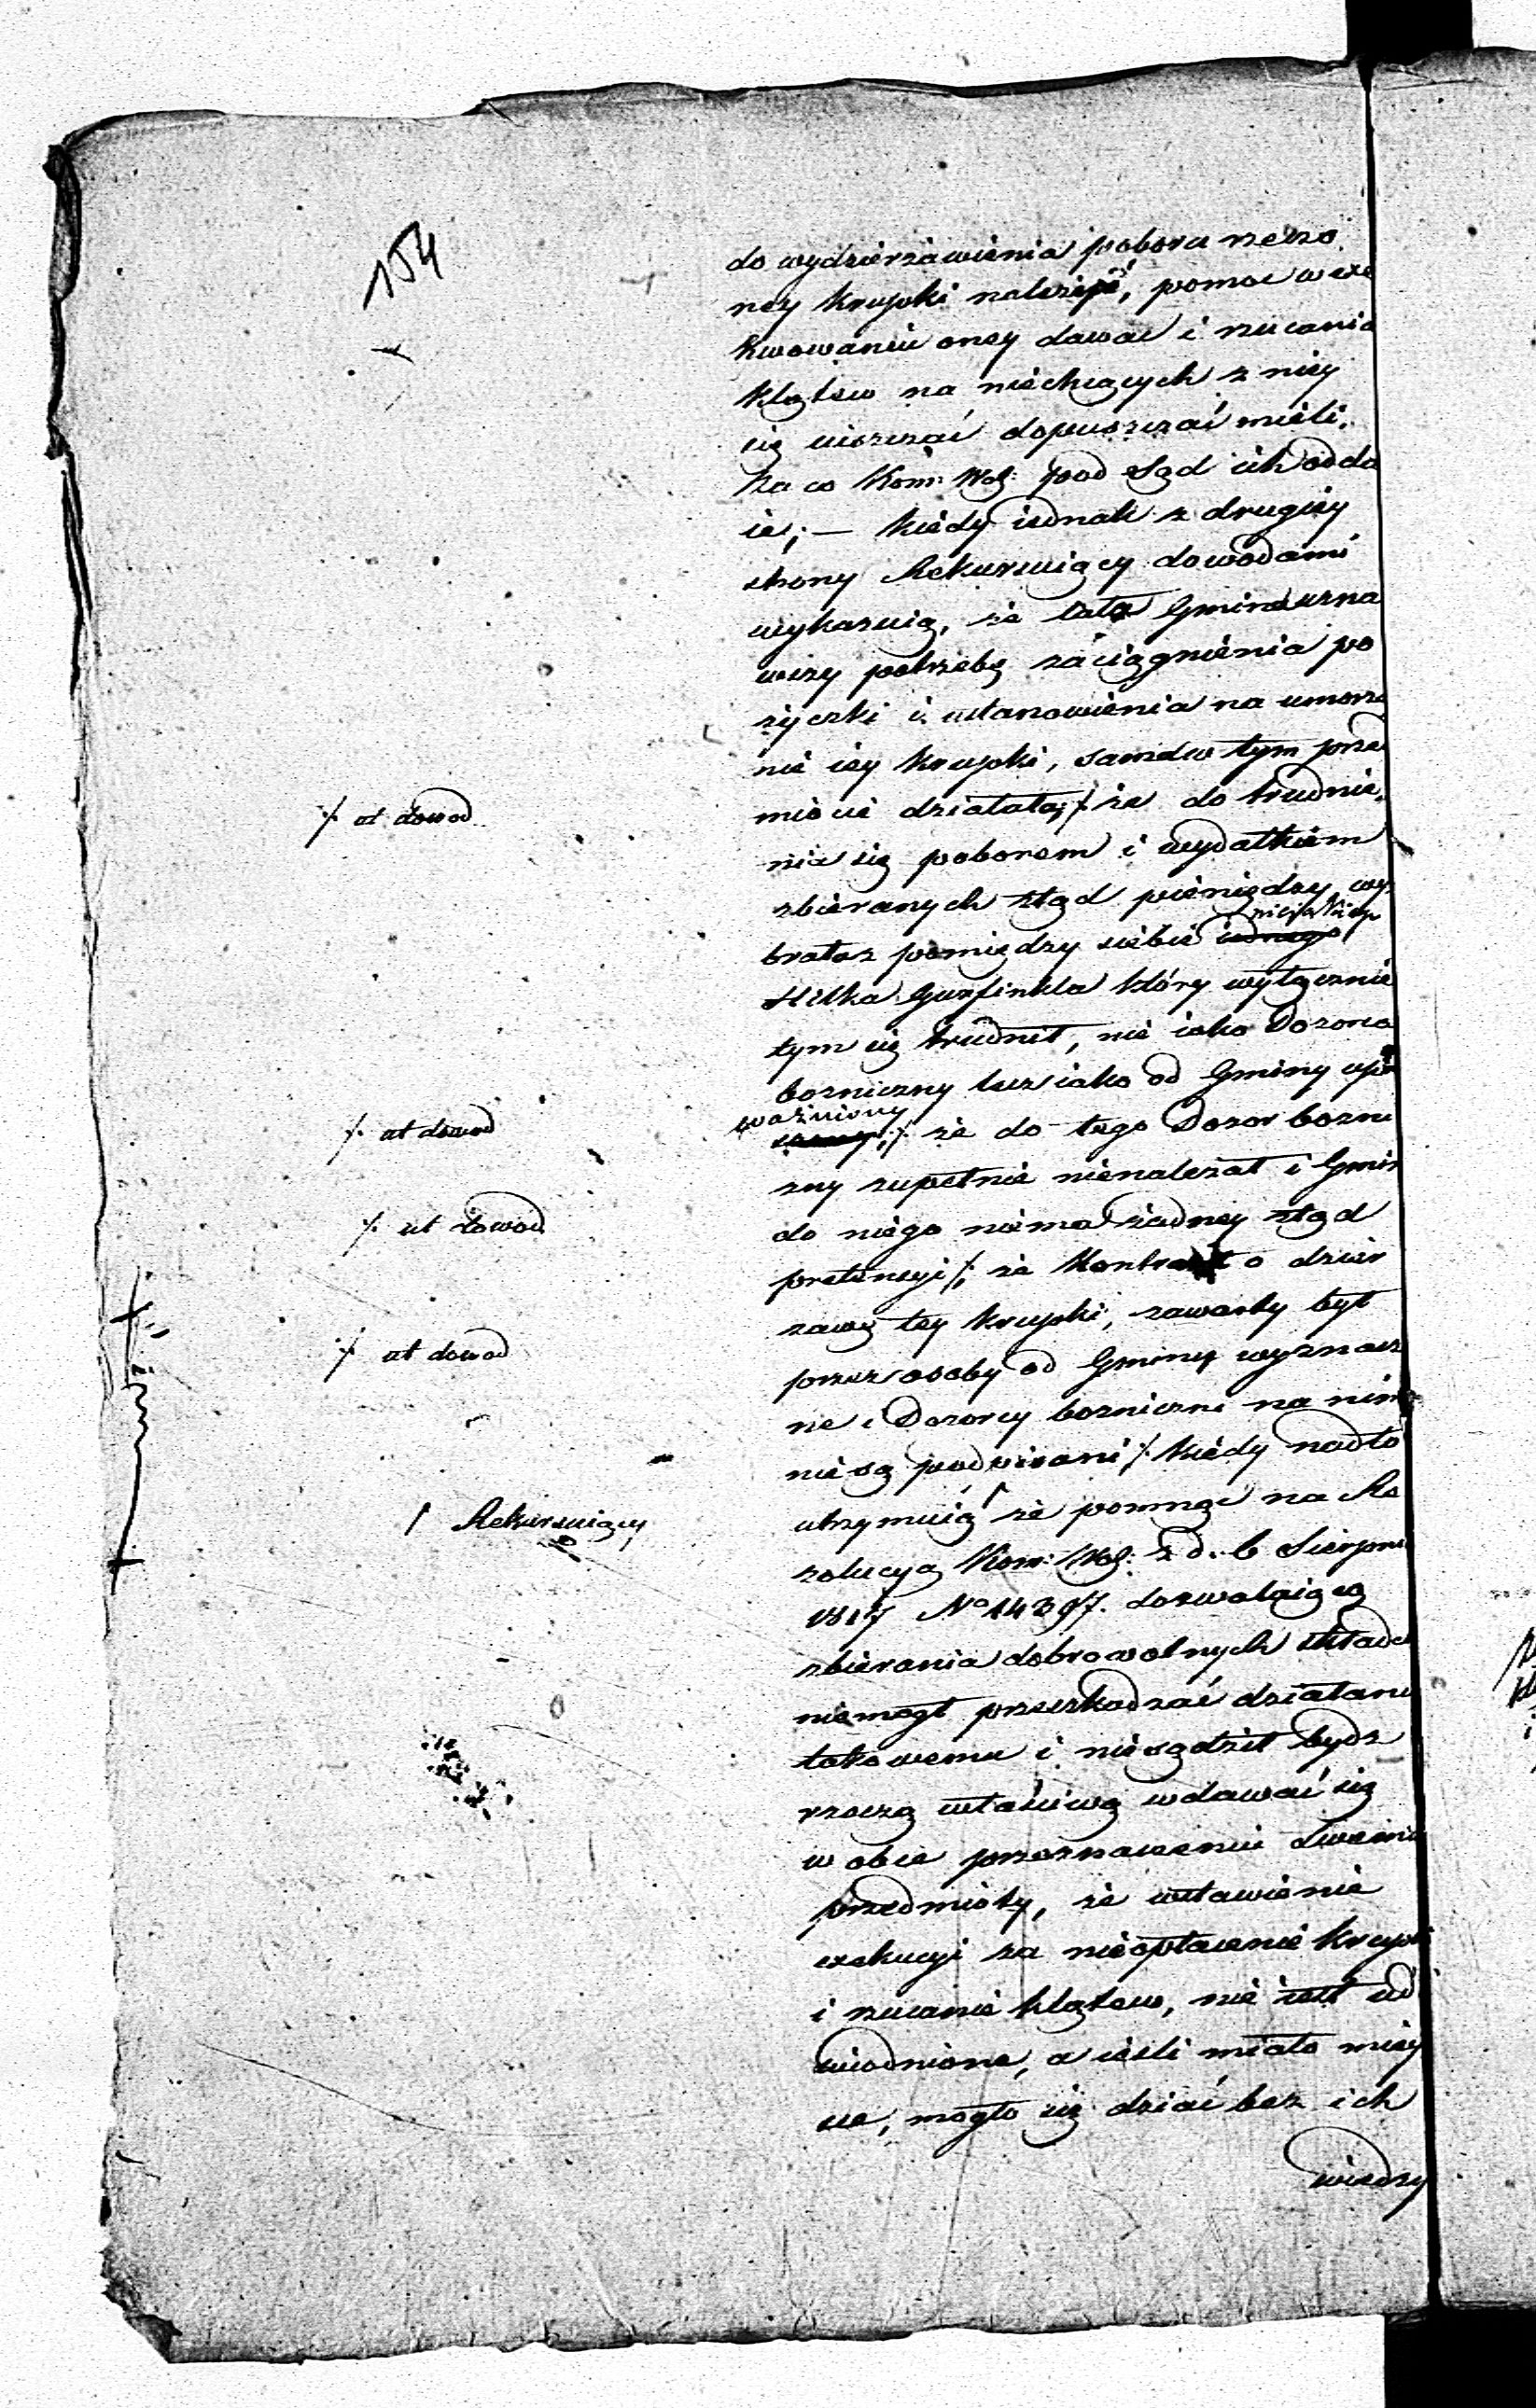 154
do wydzierżawienia poboru rzeczo
ney krupki należeć, pomoc w exe
kwowaniu oney dawać i rzucania
klątew na niechcących z niey
się uiszczać dopuszczać mieli,
za co Kom: Woj: pod Sąd ich odda
ie; — kiedy iednak z drugiey
strony Rekursuiący dowodami
wykazuią, że cała Gmina uzna
wszy potrzebę zaciągnienia po
życzki i ustanowienia na umorze
nie iey krupki, sama w tym prze
miocie działała, ⁒ że do trudnie
⁒ at dowod
nia się poborem i wydatkiem
zbieranych ztąd pieniędzy, wy
brała z pomiędzy siebie iednego
nieiakiego
Hilka Gurfinkla który wyłącznie
tym się trudnił, nie iako Dozorca
bozniczny lecz iako od Gminy upo
ważniony
⁒ że do tego Dozor bozni
⁒ at dowod
czny zupełnie nienależał i Gmin
do niego niema żadney ztąd
⁒ at dowod
pretensyi ⁒, że Kontrakt o dzier
żawę tey krupki, zawarty był
⁒ at dowod
przez osoby od Gminy wyznacz
ne i Dozorcy bozniczni na nim
nie są podpisani ⁒ kiedy nadto
utrzymuią że pomnąc na Re
/ Rekursuiący
zolucyą Kom: Woj: z d. 6 Sierpnia
1817 No 14397. dozwalaiącą
zbierania dobrowolnych składe
niemogł przeszkadzać działani
takowemu i niesądził bydź
rzeczą właściwą wdawać się
w obce przeznaczeniu swemu
przedmioty, że ustawienie
exekucyi za nieopłacenie krupki
i rzucanie klątew, nie iest ud
wodnione, a ieśli miało miey
sce, mogło się dziać bez ich
wiedzy